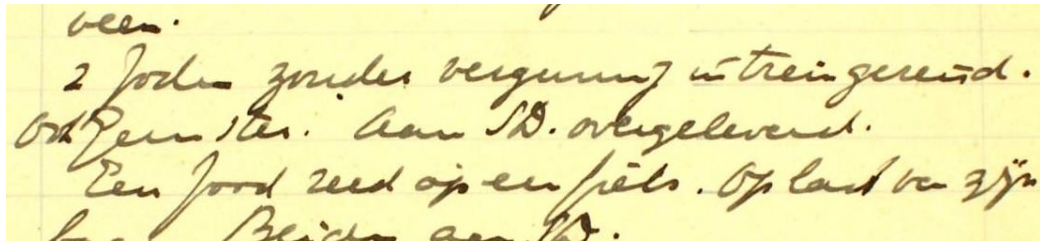 veen.
2 Joden zonder vergunning in trein gereisd.
Ook geen ster. Aan SD. overgeleverd.
Een Jood reed op een fiets. Op last van zijn
Beiden aan SD.